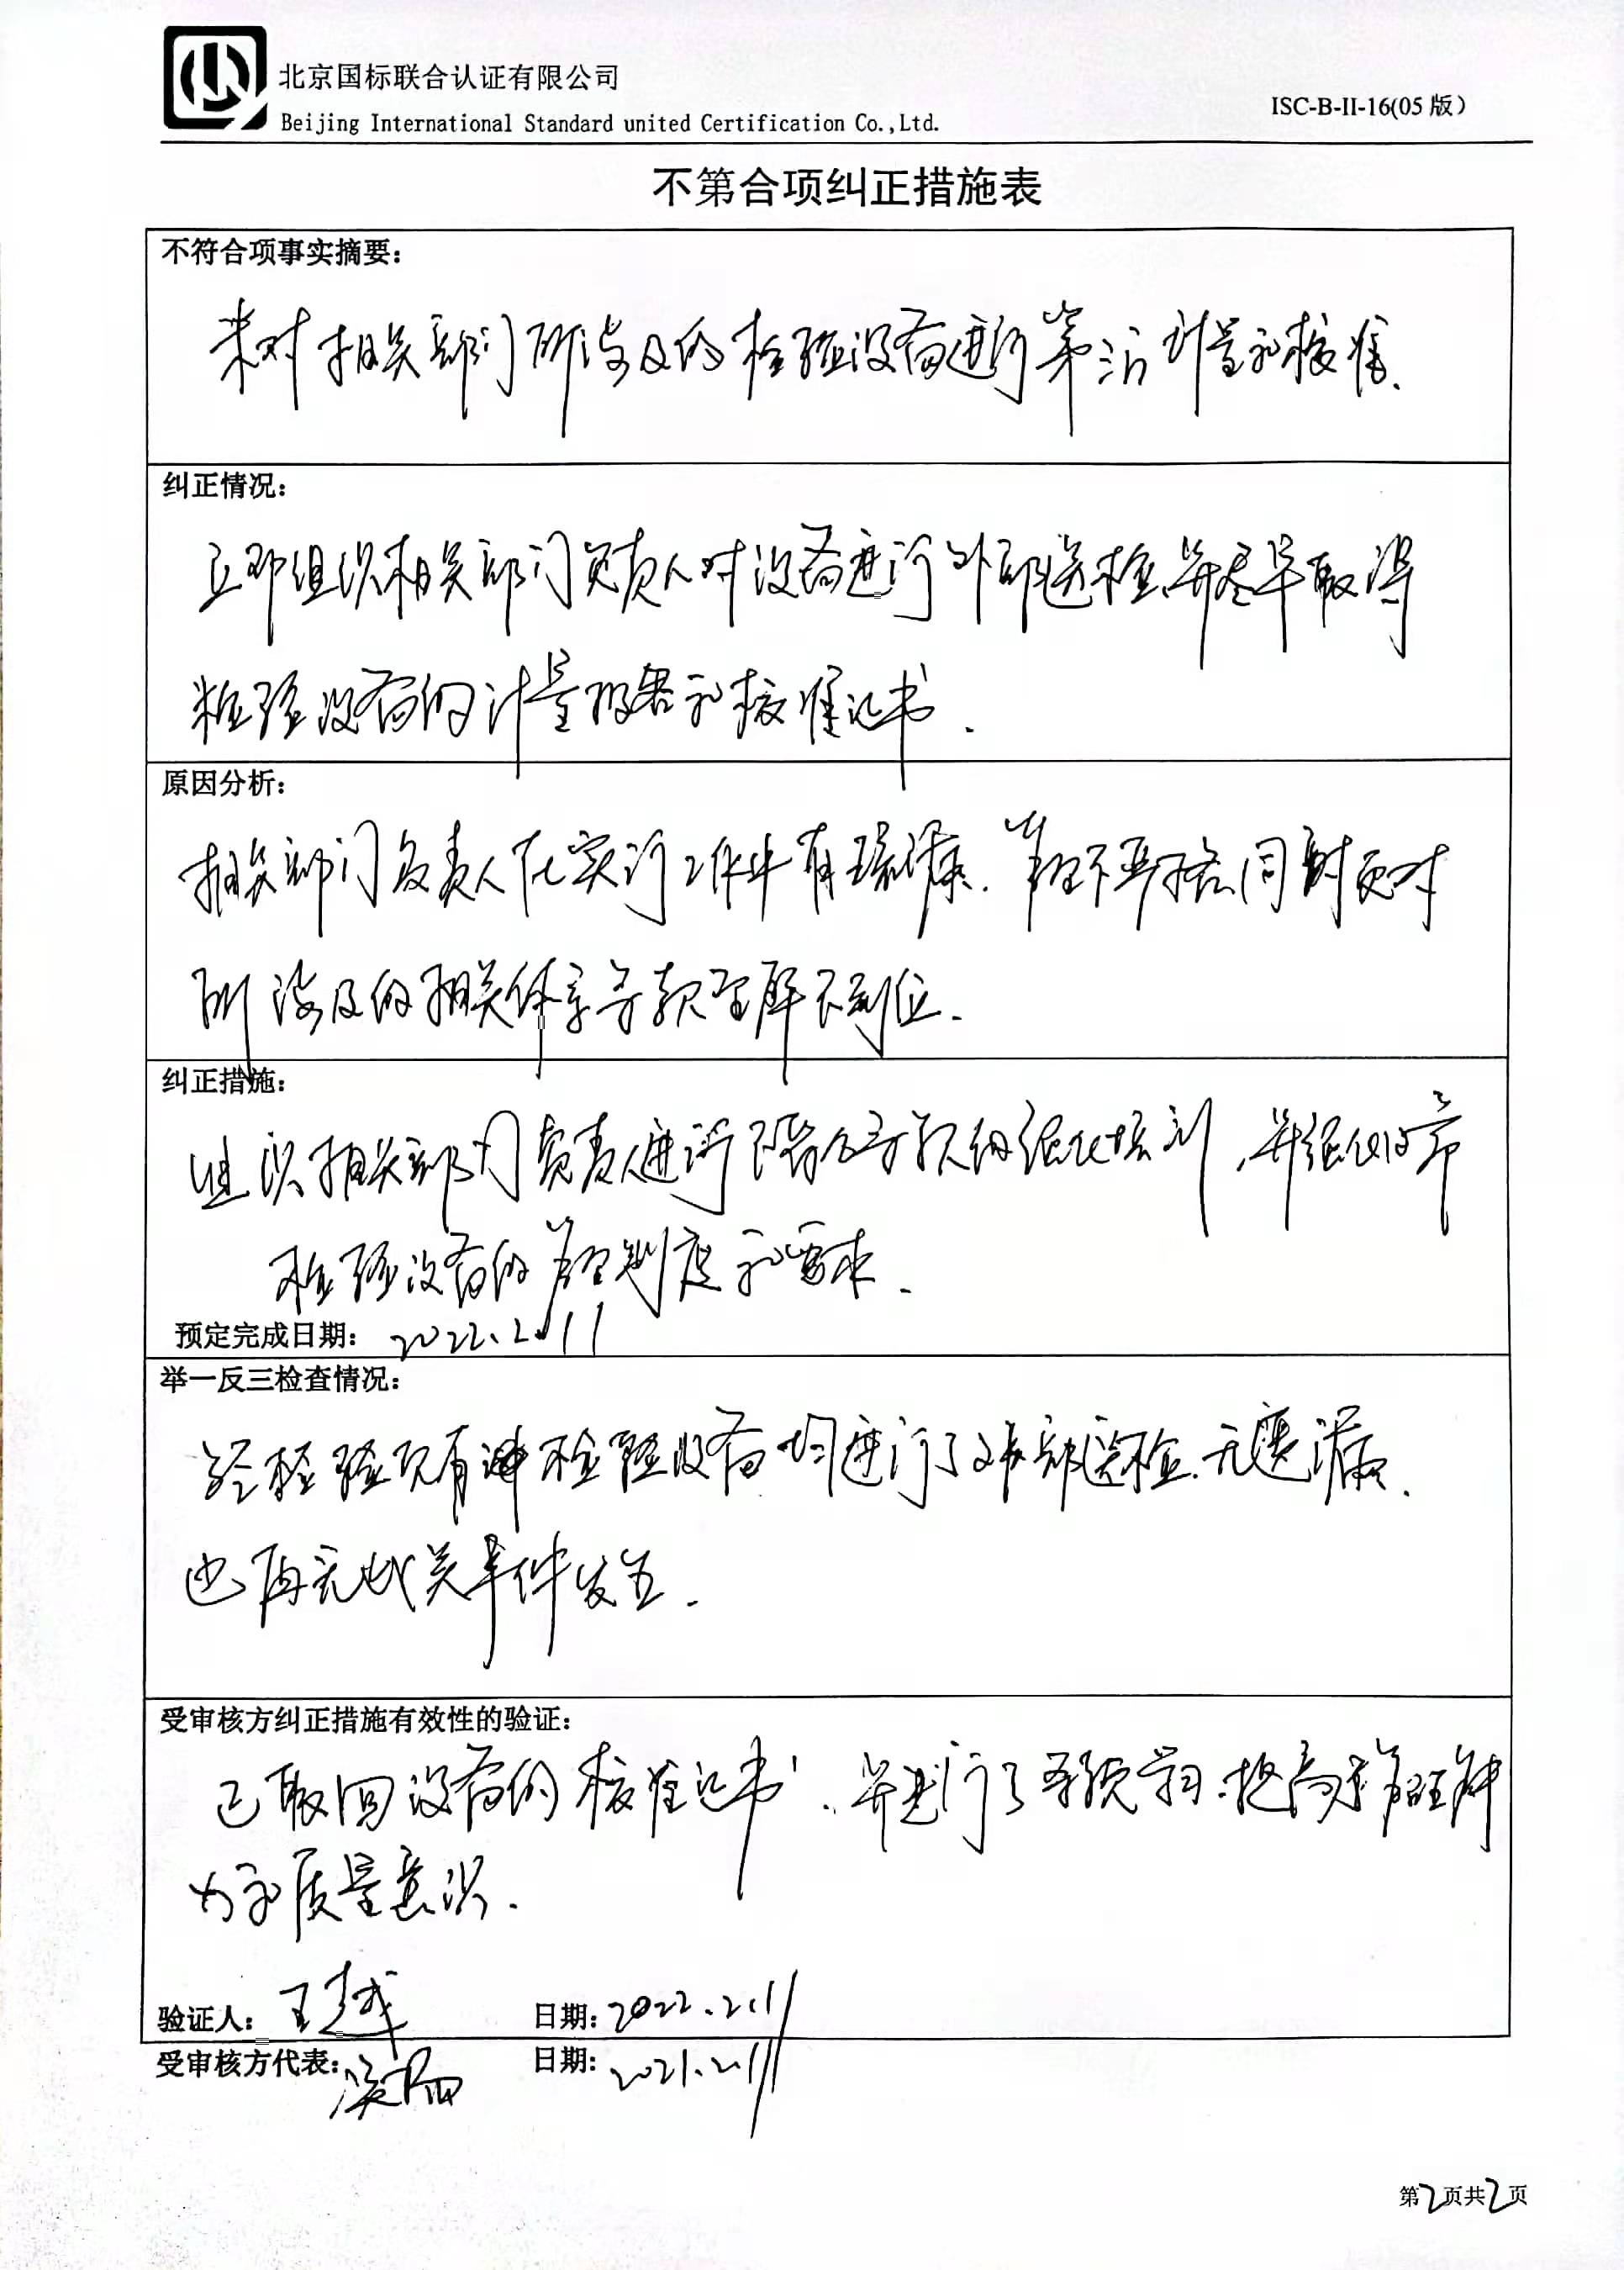 北京国标联合认证有限公司
Beijing International Standard united Certification Co.,Ltd.
ISC-B-II-16(05版)
不第合项纠正措施表
不符合项事实摘要:
未对相关部门所涉及的检验设备进行第三方计量和校准.
纠正情况:
立即组织相关部门负责人对设备进行外部送检,并尽早取得
检验设备的计量报告和校准证书.
原因分析:
相关部门负责人在实行工作中有疏漏.管理不严格,同时更对
所涉及的相关体系条款理解不到位.
纠正措施:
组织相关部门负责人进行条款的强化培训,并强化
检验设备的管理制度和要求.
预定完成日期: 2022.2.11
举一反三检查情况:
经检验现有检验设备均进行了外部送检.无遗漏.
也再无此类事件发生.
受审核方纠正措施有效性的验证:
已取回设备的校准证书,并进行了条款学习.提高了管理精
力和质量意识.
验证人: 王越 日期: 2022.2.11
受审核方代表: 日期: 2021.2.11
第2页共2页